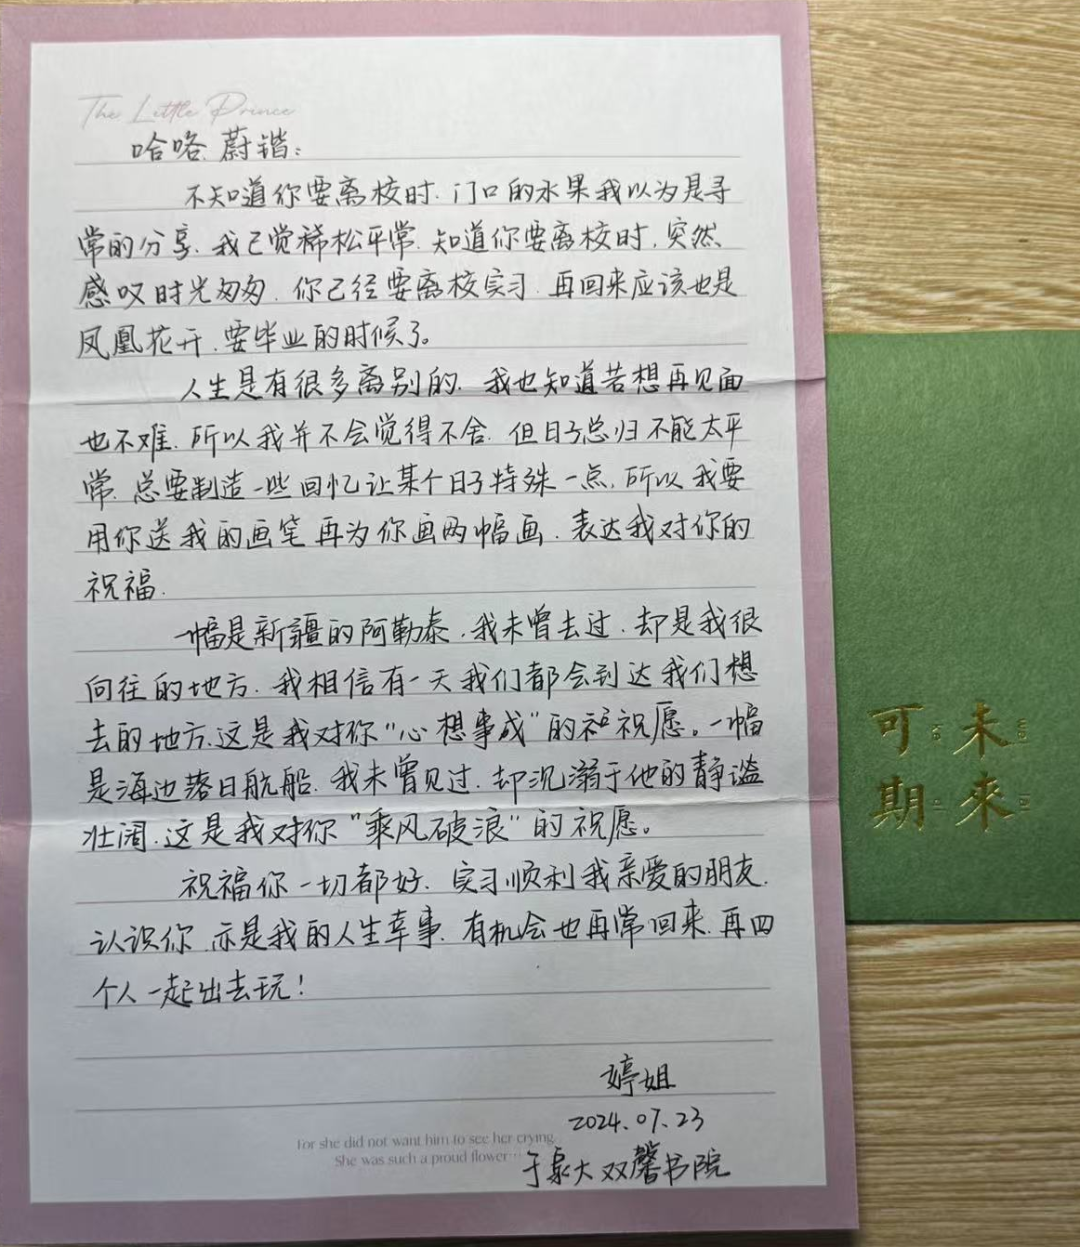 The Little Prince
哈咯、蔚锴:
不知道你要离校时、门口的水果我以为是寻
常的分享、我已觉稀松平常、知道你要离校时、突然
感叹时光匆匆、你已经要离校实习、再回来应该也是
凤凰花开、要毕业的时候了。
人生是有很多离别的、我也知道若想再见面
也不难、所以我并不会觉得不舍、但日子总归不能太平
常、总要制造一些回忆让某个日子特殊一点、所以我要
用你送我的画笔再为你画两幅画、表达我对你的
祝福.
一幅是新疆的阿勒泰、我未曾去过、却是我很
向往的地方、我相信有一天我们都会到达我们想
去的地方、这是我对你“心想事成”的祝愿。一幅
是海边落日航船、我未曾见过、却沉溺于他的静谧
壮阔、这是我对你“乘风破浪”的祝愿。
祝福你一切都好、实习顺利我亲爱的朋友、
认识你、亦是我的人生幸事、有机会也再常回来、再四
个人一起出去玩!
婷姐
2024.07.23
于泉大双馨书院
For she did not want him to see her crying.
She was such a proud flower…
未来
可期